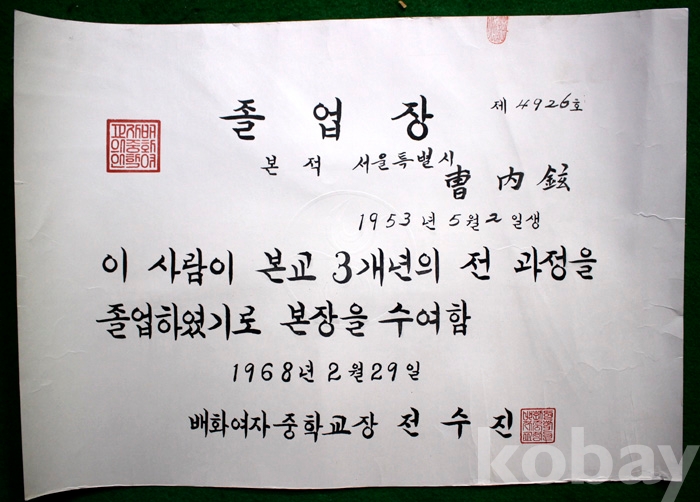 졸 업 장
제 4926호
본 적 서울특별시
曺 內 鉉
1953년 5월 2일생
이 사람이 본교 3개년의 전 과정을
졸업하였기로 본장을 수여함
1968년 2월 29일
배화여자중학교장 전 수 진
kobay